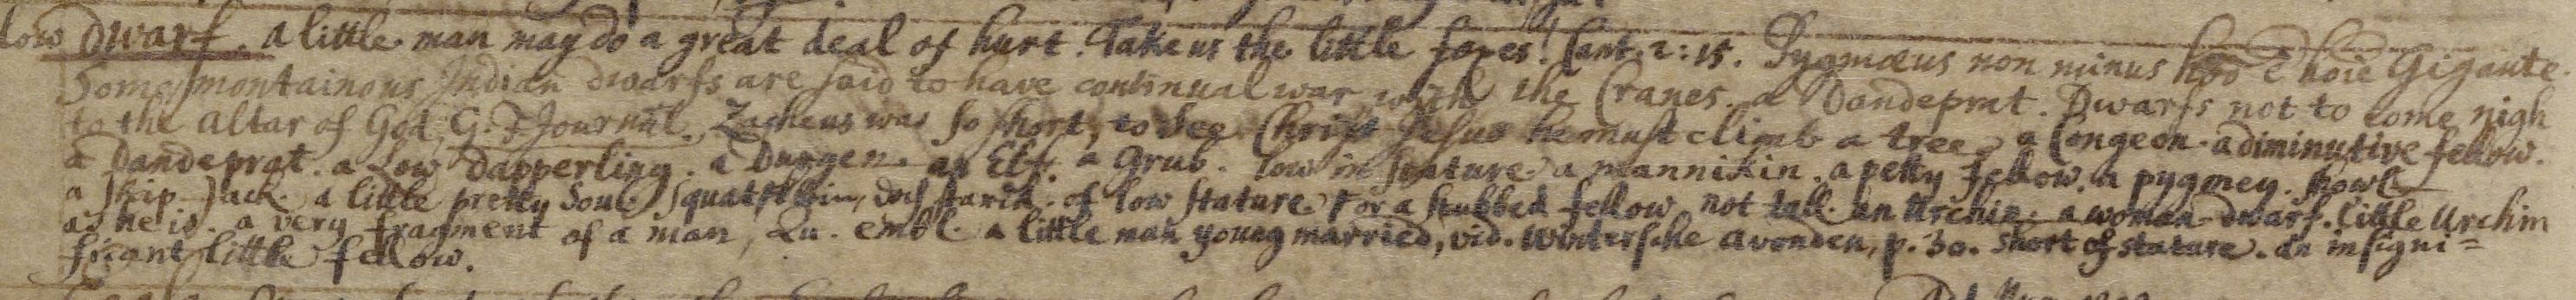 low Dwarf. a little man may do a great deal of hurt. Take us the little foxes! Cant. 2: 15. Pygmæus non minus hōō ē hōīē Gigante.
Some montainous Indian dwarfs are said to have continual war with the Cranes. a Dandeprat. Dwarfs not to come nigh
to the altar of God, G. F. Journal. Zacheus was so short, to see Christ Jesus he must climb a tree. a Congeon. a diminutive fellow.
a Dandeprat. a Low Dapperling. a Durgen. an Elf. a Grub. low in stature. a mannikin. a petty fellow. a pygmey.
a skip-Jack. a little pretty Soul. Squat, doch starck. of low stature. For a stubbed fellow not tall. an Urchin. a woman-dwarf. little Urchin
as he is. a very fragment of a man, Lu. embl. a little man young married, vid. Wintersche avonden, p. 30. short of stature. an insigni=
ficant little fellow.